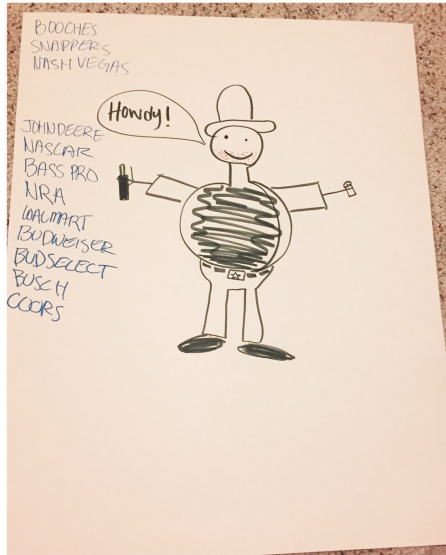 BOOCHES
SNAPPERS
NASH VEGAS
Howdy!
JOHN DEERE
NASCAR
BASS PRO
NRA
WALMART
BUDWEISER
BUDSELECT
BUSCH
COORS